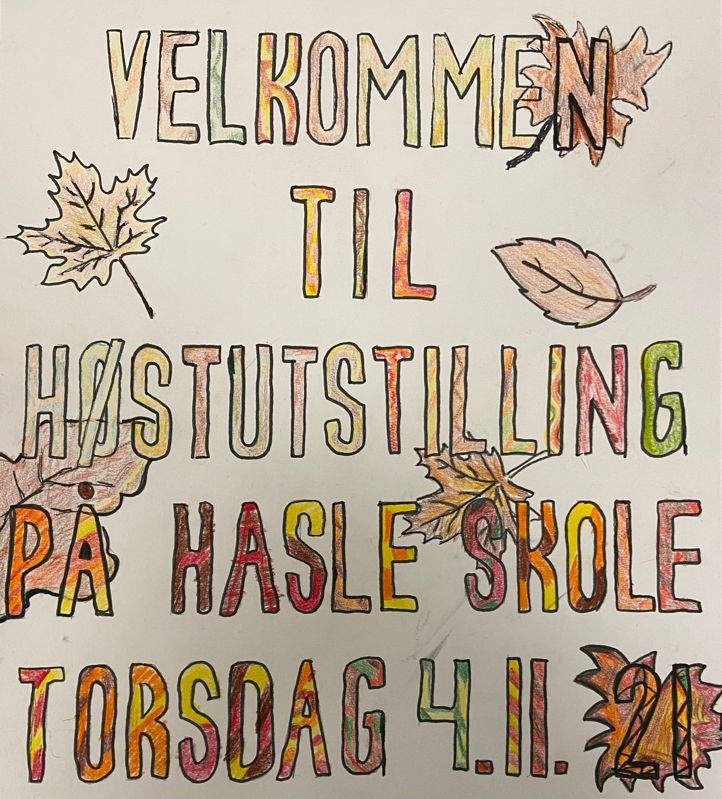 VELKOMMEN
TIL
HØSTUTSTILLING
PÅ HASLE SKOLE
TORSDAG 4.11.21